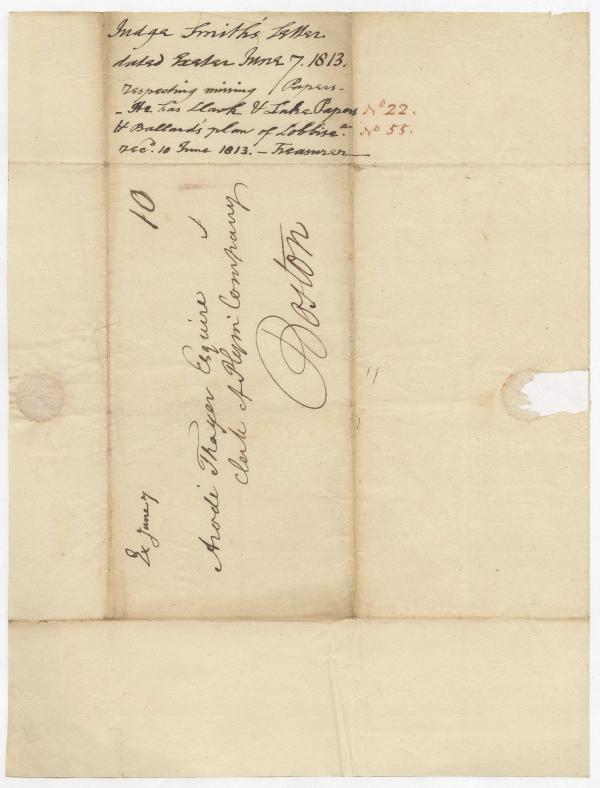 Judge Smith's Letter
dated Exeter June 7. 1813.
respecting missing Papers -
- He has Clark & Lake Papers No 22.
& Ballard's plan of Cobbise.a No 55.
rec.d 10 June 1813. - Treasurer
10
Arodi Thayer Esquire
Clerk of Plym Company
Boston
Ex June 7